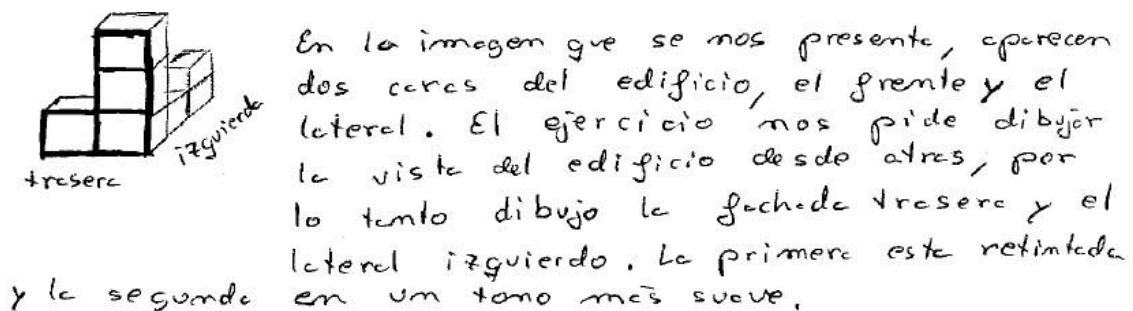 En la imagen que se nos presenta, aparecen
dos caras del edificio, el frente y el
lateral. El ejercicio nos pide dibujar
la vista del edificio desde atras, por
lo tanto dibujo la fachada trasera y el
lateral izquierdo. La primera esta retintada
y la segunda en un tono más suave.
trasera
izquierda